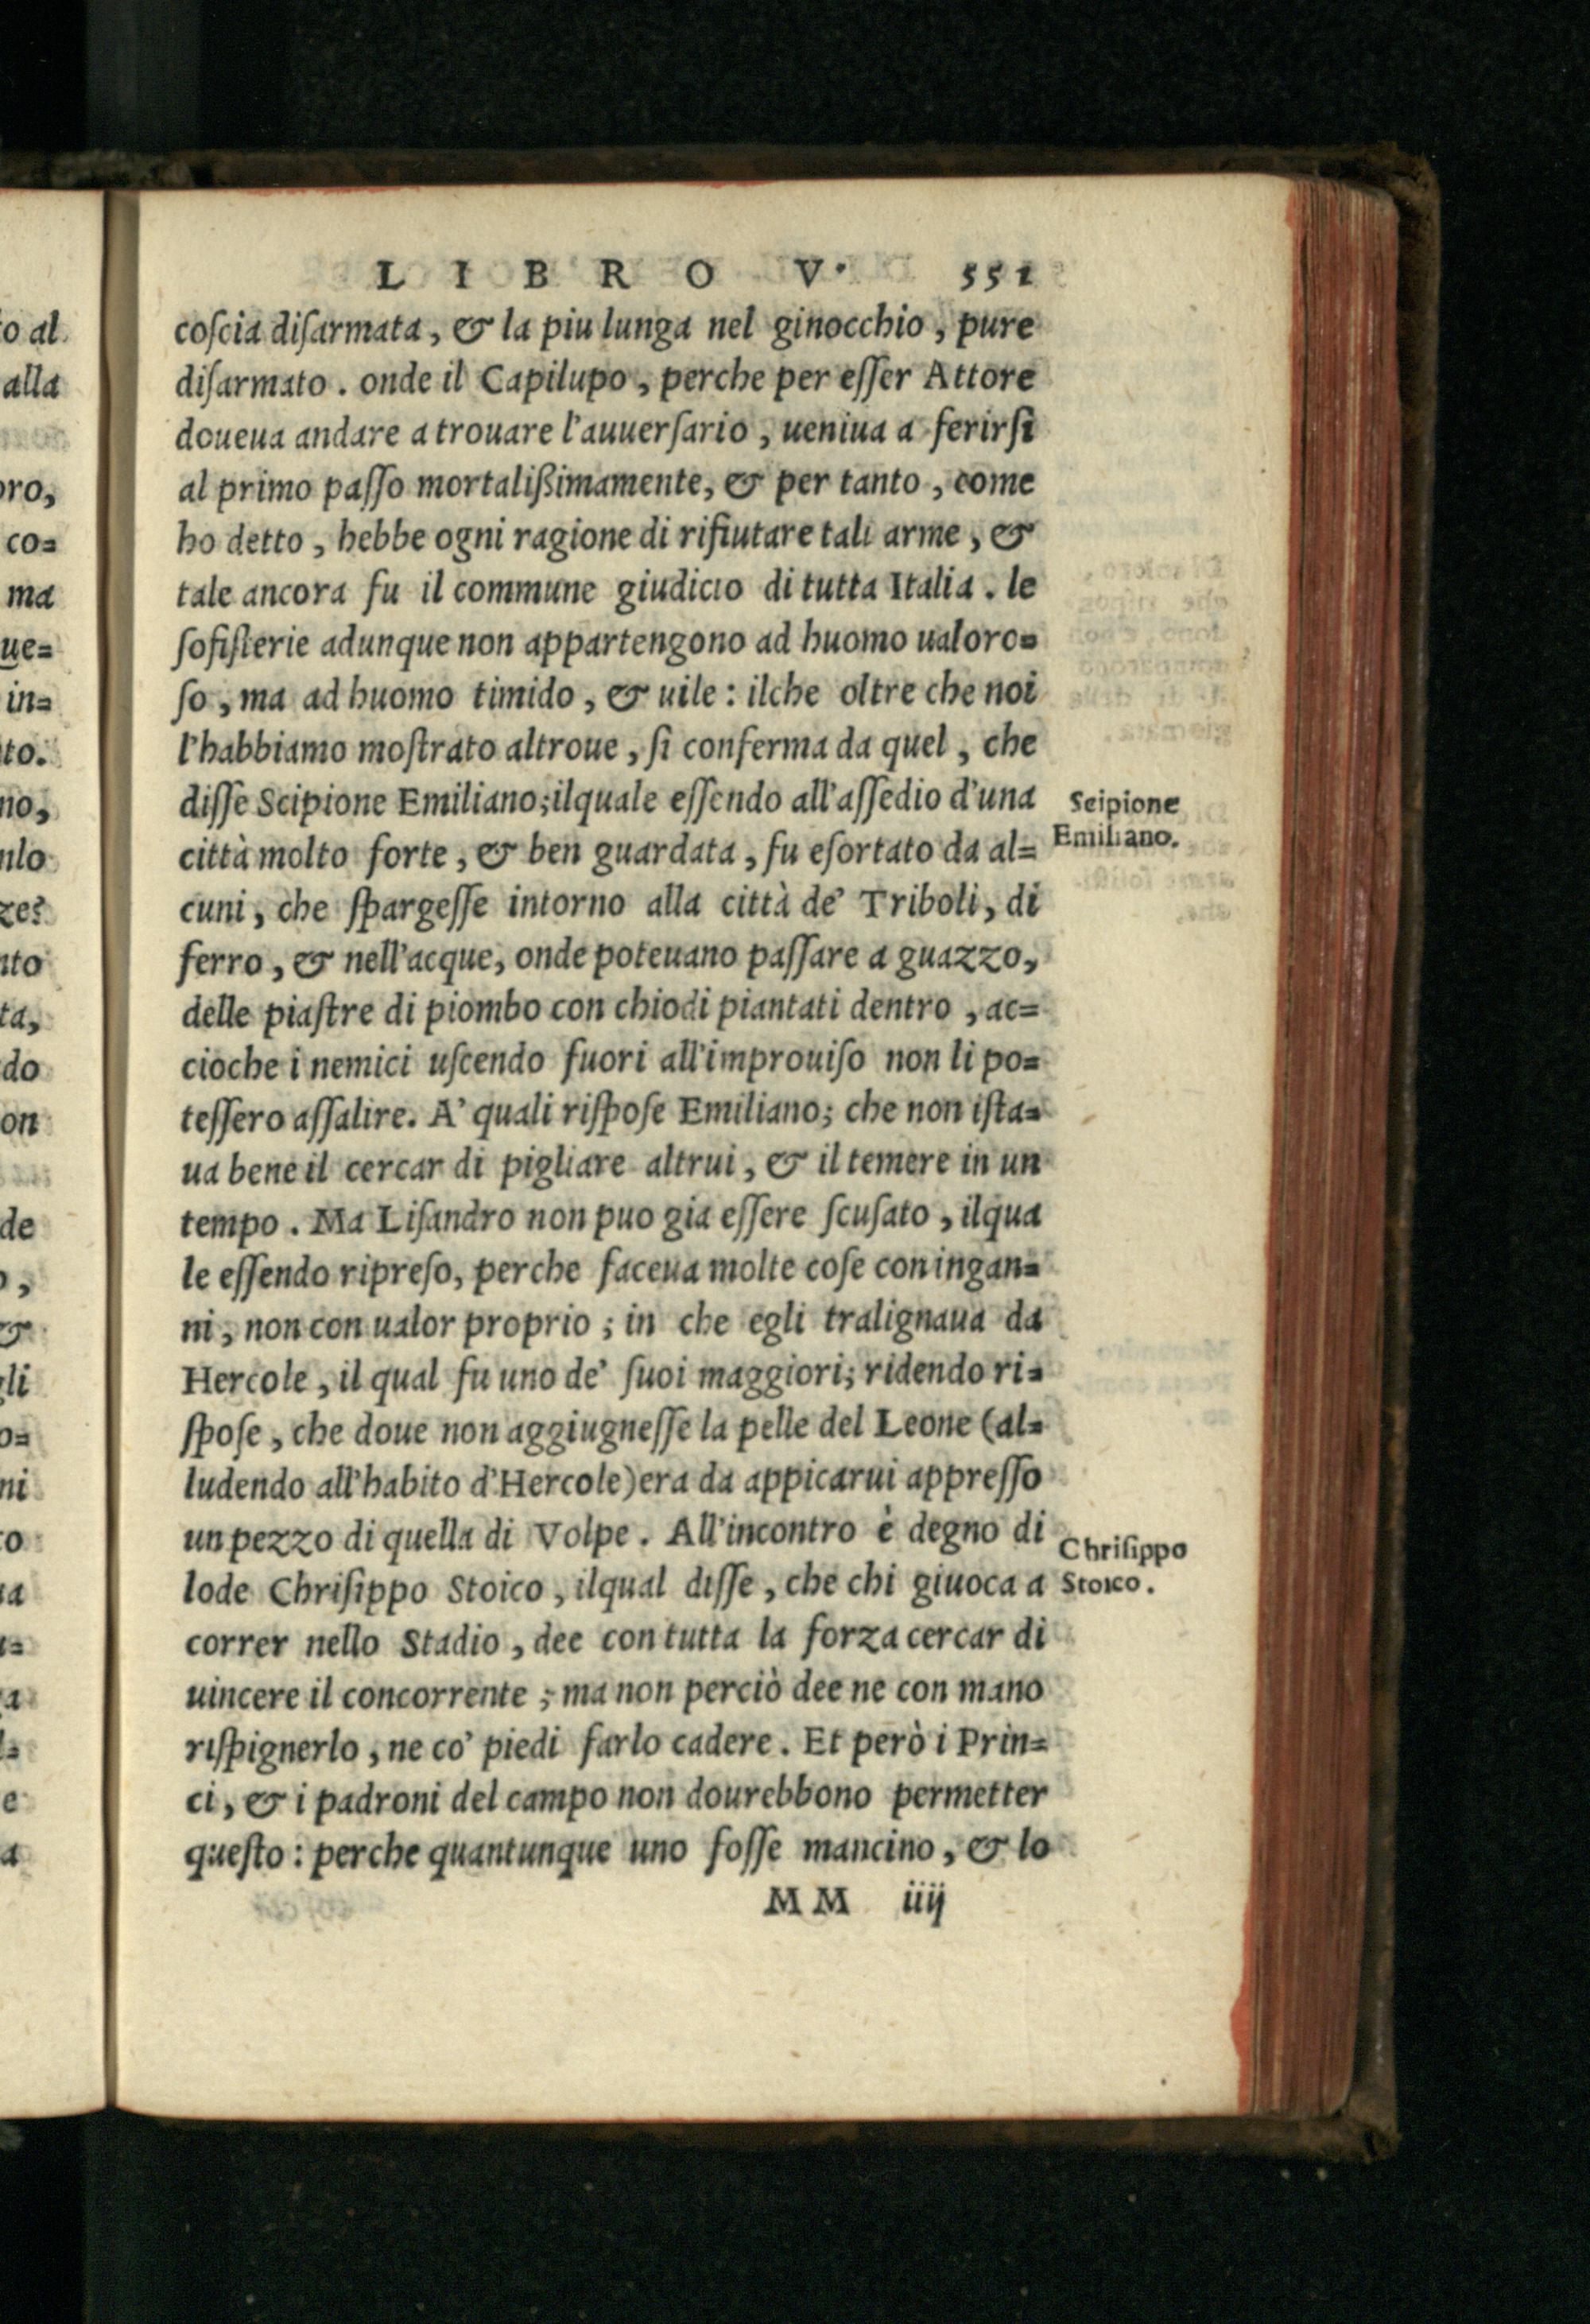 LIBRO V. 551
coſcia diſarmata, & la piu lunga nel ginocchio, pure
diſarmato. onde il Capilupo, perche per eſſer Attore
doueua andare a trouare l'auuerſario, ueniua a ferirſi
al primo paſſo mortalißimamente, & per tanto, come
ho detto, hebbe ogni ragione di rifiutare tali arme, &
tale ancora fu il commune giudicio di tutta Italia. le
ſofiſterie adunque non appartengono ad huomo ualoro=
ſo, ma ad huomo timido, & uile: ilche oltre che noi
l'habbiamo moſtrato altroue, ſi conferma da quel, che
diſſe Scipione Emiliano; ilquale eſſendo all'aſſedio d'una
Scipione
Emiliano.
città molto forte, & ben guardata, fu eſortato da al=
cuni, che ſpargeſſe intorno alla città de' Triboli, di
ferro, & nell'acque, onde poteuano paſſare a guazzo,
delle piaſtre di piombo con chiodi piantati dentro, ac=
cioche i nemici uſcendo fuori all'improuiſo non li po=
teſſero aſſalire. A' quali riſpoſe Emiliano; che non iſta=
ua bene il cercar di pigliare altrui, & il temere in un
tempo. Ma Liſandro non puo gia eſſere ſcuſato, ilqua
le eſſendo ripreſo, perche faceua molte coſe con ingan=
ni, non con ualor proprio; in che egli tralignaua da
Hercole, il qual fu uno de' ſuoi maggiori; ridendo ri=
ſpoſe, che doue non aggiugneſſe la pelle del Leone (al=
ludendo all'habito d'Hercole) era da appicarui appreſſo
un pezzo di quella di Volpe. All'incontro è degno di
Chriſippo
Stoico.
lode Chriſippo Stoico, ilqual diſſe, che chi giuoca a
correr nello Stadio, dee con tutta la forza cercar di
uincere il concorrente; ma non perciò dee ne con mano
riſpignerlo, ne co' piedi farlo cadere. Et però i Prin=
ci, & i padroni del campo non dourebbono permetter
queſto: perche quantunque uno foſſe mancino, & lo
MM iiij